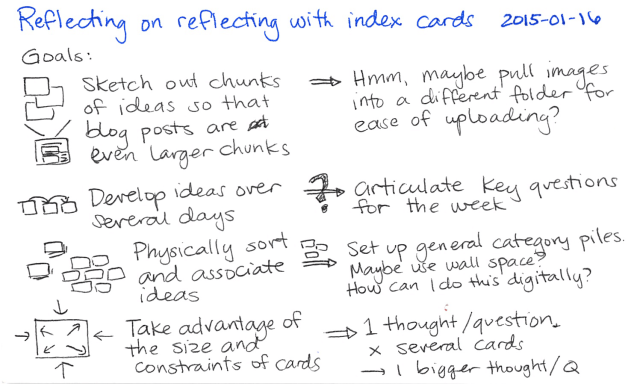 Reflecting on reflecting with index cards 2015-01-16
Goals:
Sketch out chunks
of ideas so that
blog posts are
even larger chunks
⇒ Hmm, maybe pull images
into a different folder for
ease of uploading?
Develop ideas over
several days
? ⇒ articulate key questions
for the week
Physically sort
and associate
ideas
⇒ Set up general category piles.
Maybe use wall space?
How can I do this digitally?
Take advantage of
the size and
constraints of cards
⇒ 1 thought/question
x several cards
→ 1 bigger thought/Q